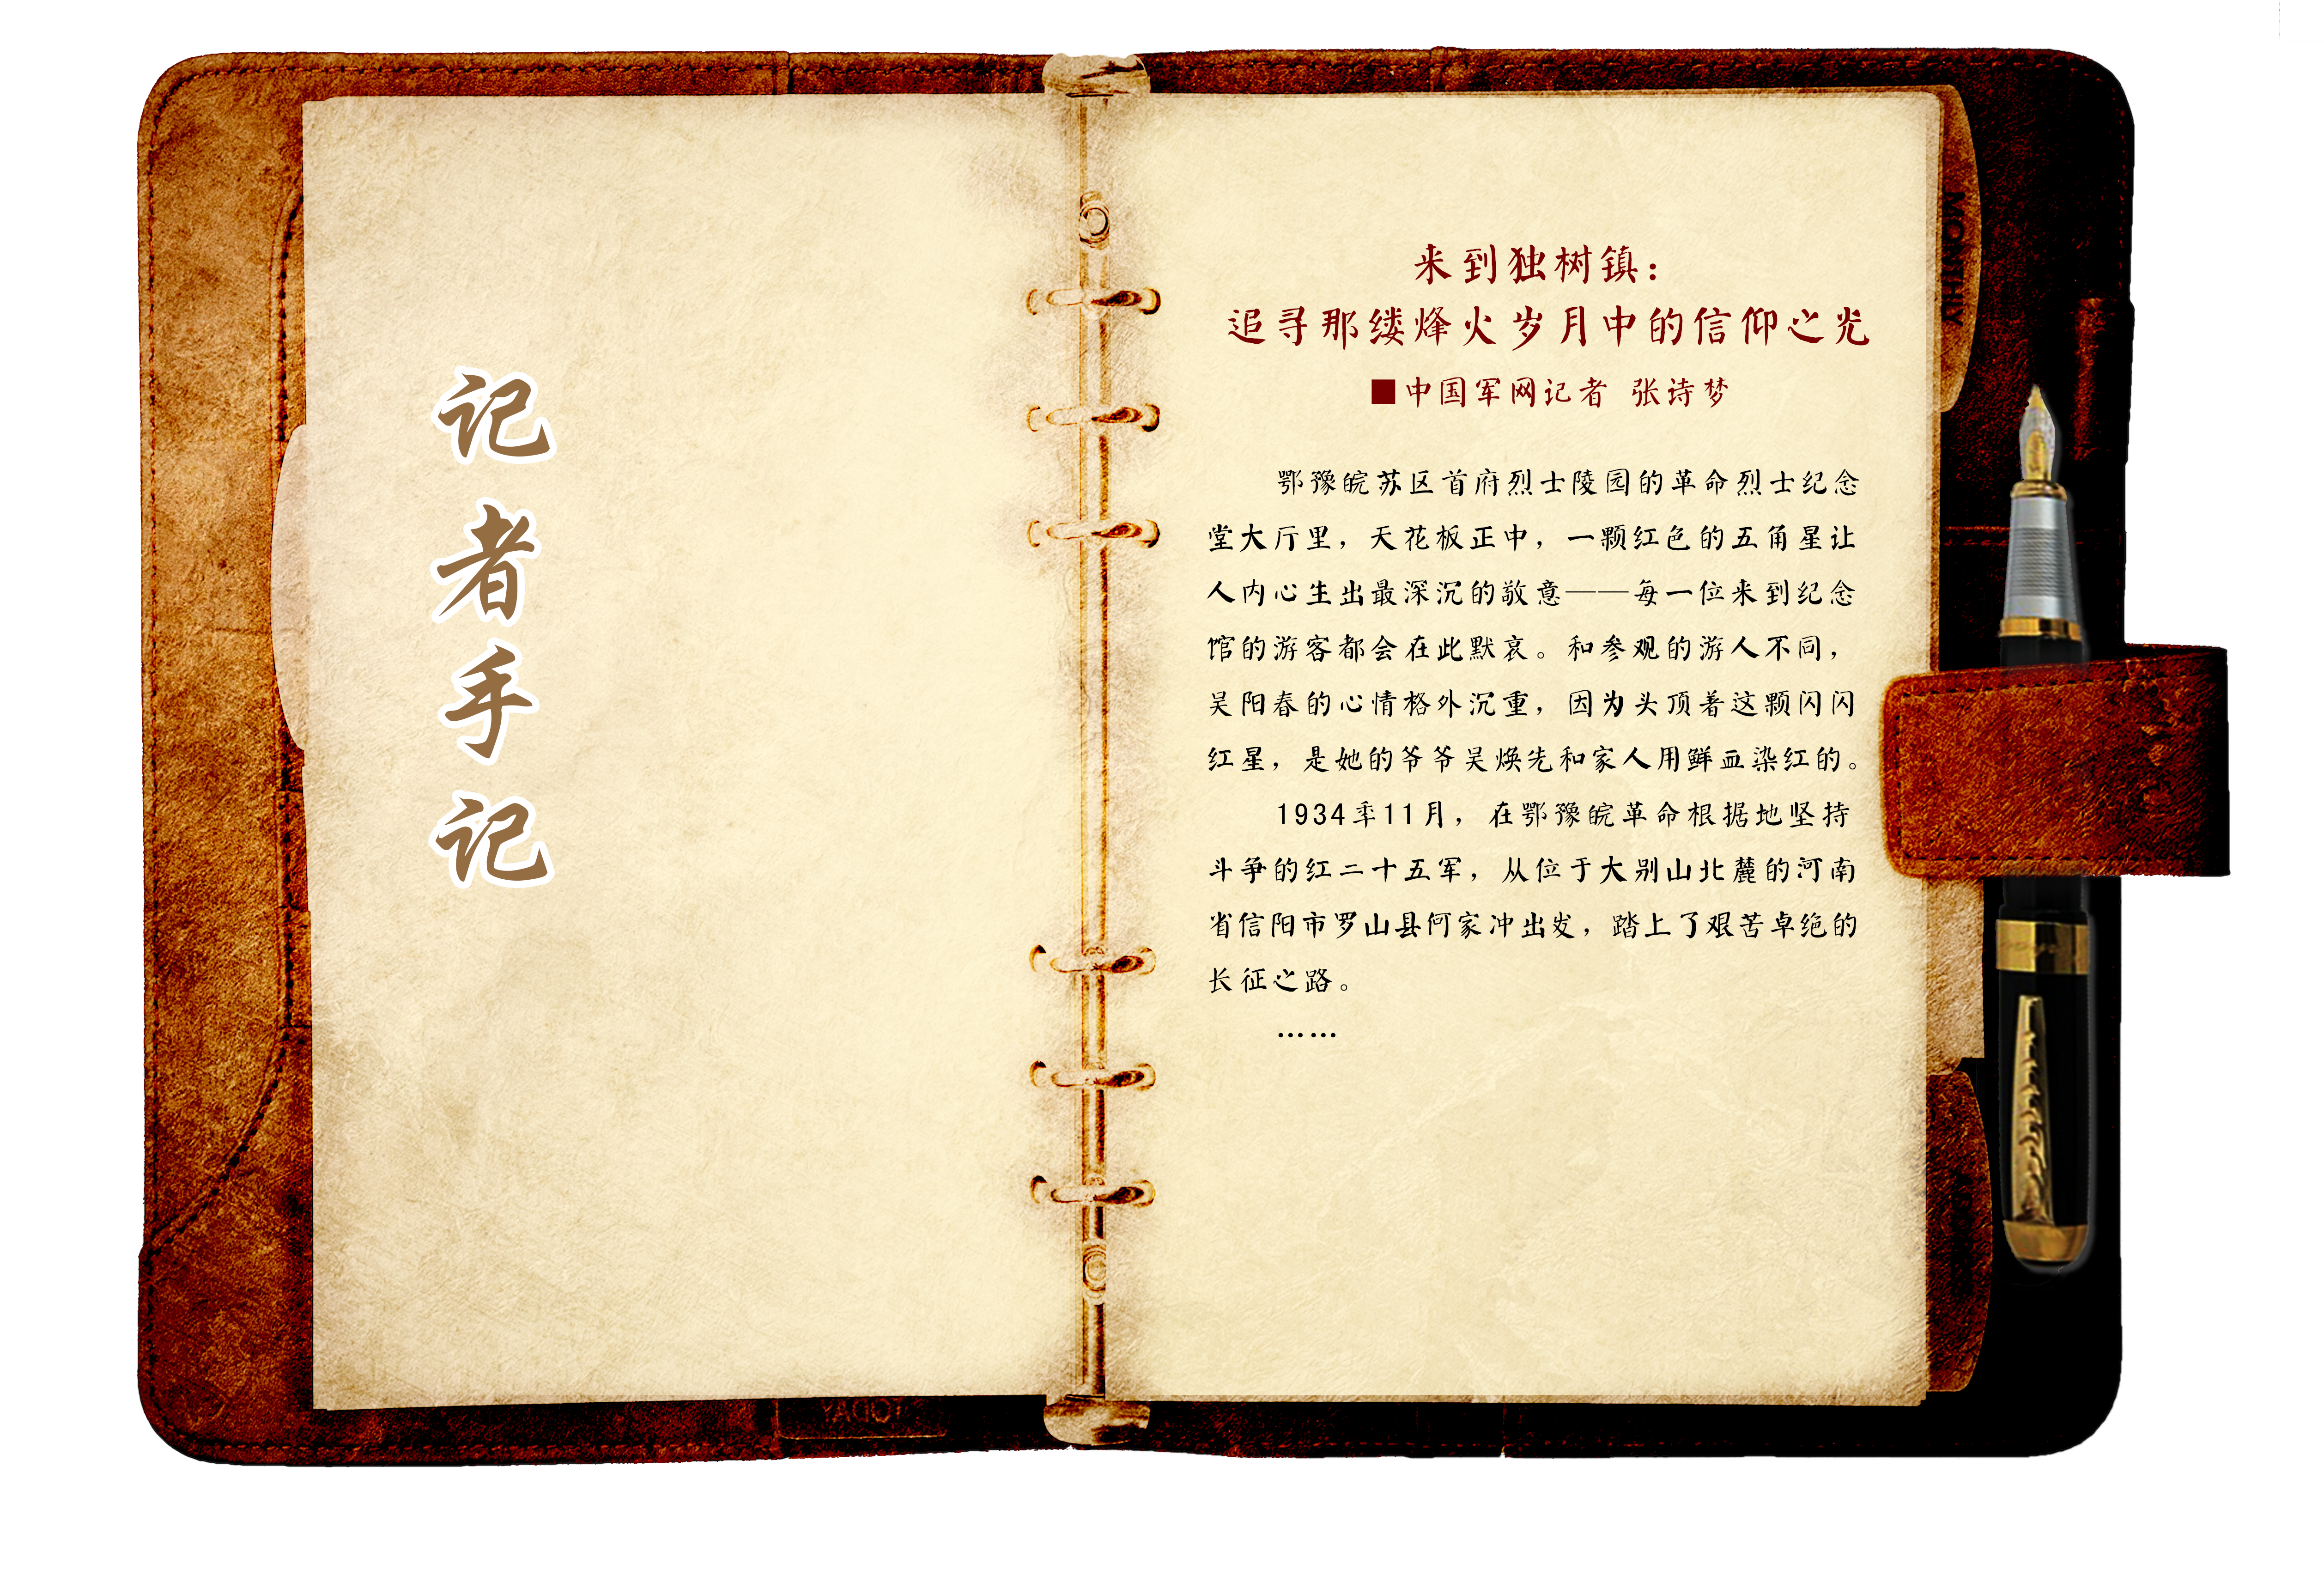 记者手记
来到独树镇：
追寻那缕烽火岁月中的信仰之光
■中国军网记者 张诗梦
鄂豫皖苏区首府烈士陵园的革命烈士纪念
堂大厅里，天花板正中，一颗红色的五角星让
人内心生出最深沉的敬意——每一位来到纪念
馆的游客都会在此默哀。和参观的游人不同，
吴阳春的心情格外沉重，因为头顶着这颗闪闪
红星，是她的爷爷吴焕先和家人用鲜血染红的。
1934年11月，在鄂豫皖革命根据地坚持
斗争的红二十五军，从位于大别山北麓的河南
省信阳市罗山县何家冲出发，踏上了艰苦卓绝的
长征之路。
……
MONTHLY
TODAY